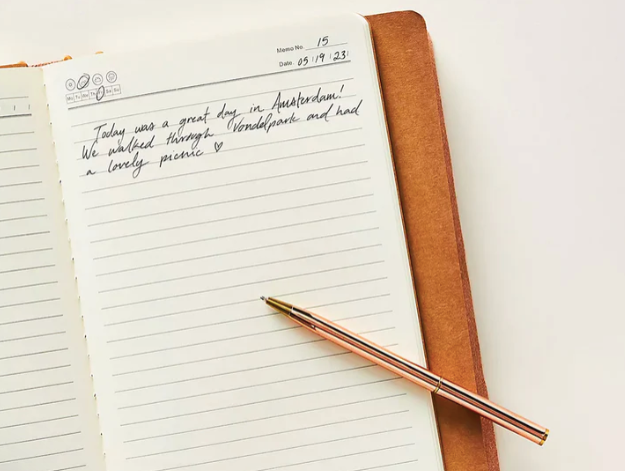 Memo No. 15
Date. 05 / 19 / 23
Mo Tu We Th Fr Sa Su
Today was a great day in Amsterdam!
We walked through Vondelpark and had
a lovely picnic ♡